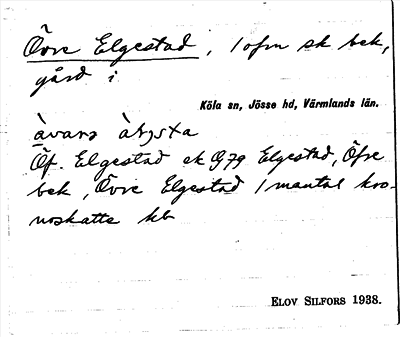 Övre Elgestad, 1 ofm sk bek,
gård i
Köla sn, Jösse hd, Värmlands län.
àvars àlgsta
Öf. Elgestad ek G79 Elgestad, Öfre
bek, Övre Elgestad 1 mantal kro-
noskatte kb
ELOV SILFORS 1938.